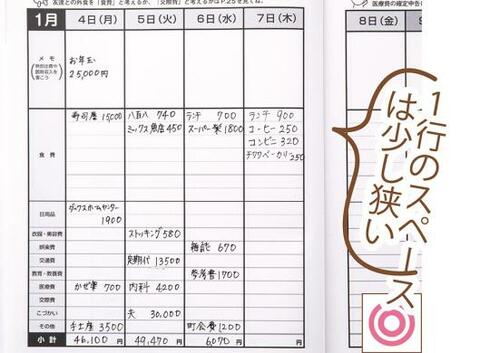 友達との外食を「食費」と考えるか、「交際費」と考えるかはP.25を見てね。
医療費の確定申告
1月 4日(月) 5日(火) 6日(水) 7日(木) 8日(金)
メモ
お年玉
25,000円
食費
寿司屋 15000
八百八 740
ミックス魚店 450
ランチ 700
スーパー 1800
ランチ 900
コーヒー 250
コンビニ 320
250
日用品
ダックスホームセンター
1900
衣服・美容費
ストッキング 580
娯楽費
670
交通費
定期代 13500
教育・教養費
参考書 1700
医療費
かぜ薬 700
内科 4200
交際費
こづかい
夫 30,000
その他
手土産 3500
町会費 1200
小計 46,100 円 49,470 円 6070 円 円
1行のスペース
は少し狭い